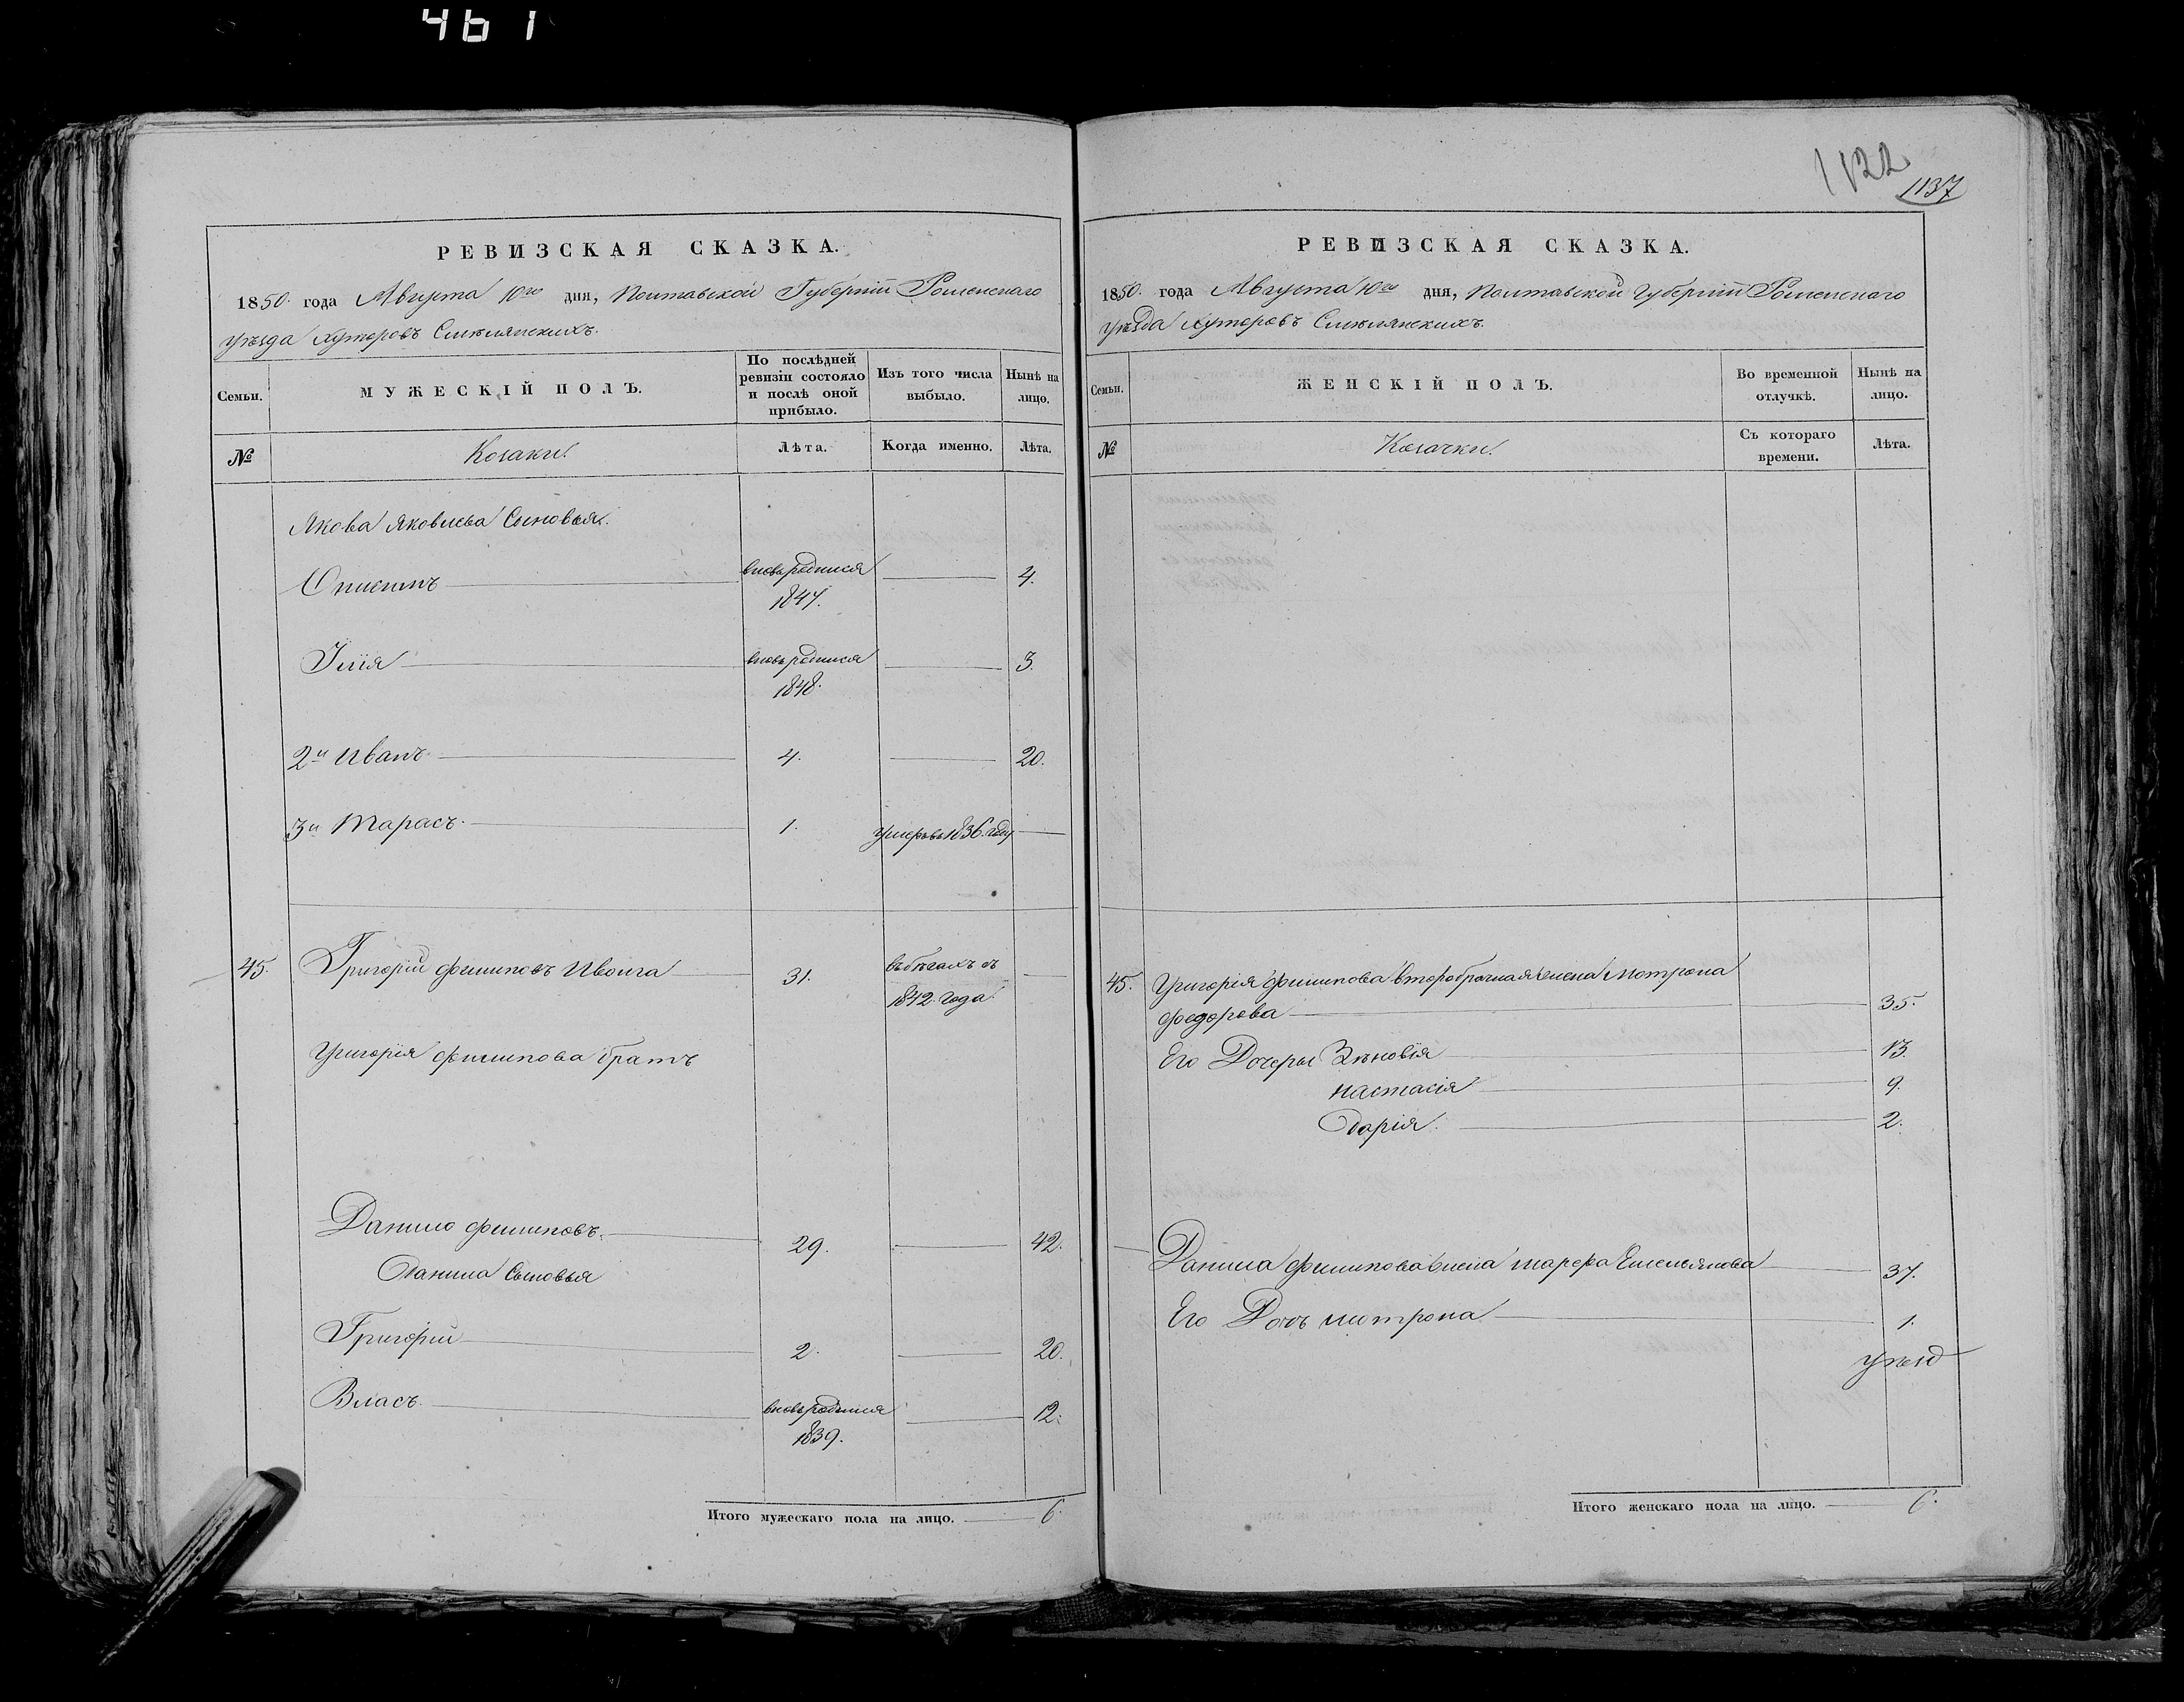 461
1122
1137
РЕВИЗСКАЯ СКАЗКА.
1850. года Августа 10го дня, Полтавской Губернiи Роменскаго
уѣзда хуторовъ Смѣлянскихъ.
Семьи.
МУЖЕСКІЙ ПОЛЪ.
По послѣдней ревизіи состояло и послѣ оной прибыло.
Изъ того числа выбыло.
Нынѣ на лицо.
№
Козаки.
Лѣта.
Когда именно.
Лѣта.
Якова Яковлева Сыновья.
Онисимъ вновь родился 4.
1847.
Илія вновь родился 3.
1848.
2й Иванъ 4. 20.
3й Тарасъ. 1. умеръ въ 1836. году
45. Григорій Филиповъ 31. въ бѣгахъ съ
1842. года
Григорія Филипова братъ
Данило Филиповъ. 29. 42.
Данила Сыновья
Григорій 2. 20.
Власъ. вновь родился 12.
1839.
Итого мужескаго пола на лицо. 6.
РЕВИЗСКАЯ СКАЗКА.
1850. года Августа 10го дня, Полтавской Губернiи Роменскаго
уѣзда хуторовъ Смѣлянскихъ.
Семьи.
ЖЕНСКІЙ ПОЛЪ.
Во временной отлучкѣ.
Нынѣ на лицо.
№
Козачки.
Съ котораго времени.
Лѣта.
45. Григорія Филипова второбрачная жена Мотрона
Федорова 35.
Его Дочеры Зѣновія 13.
Настасія 9.
Дарія. 2.
Данила Филипова жена Марфа Емельянова 37.
Его Дочь Мотрона 1.
Итого женскаго пола на лицо. 6.